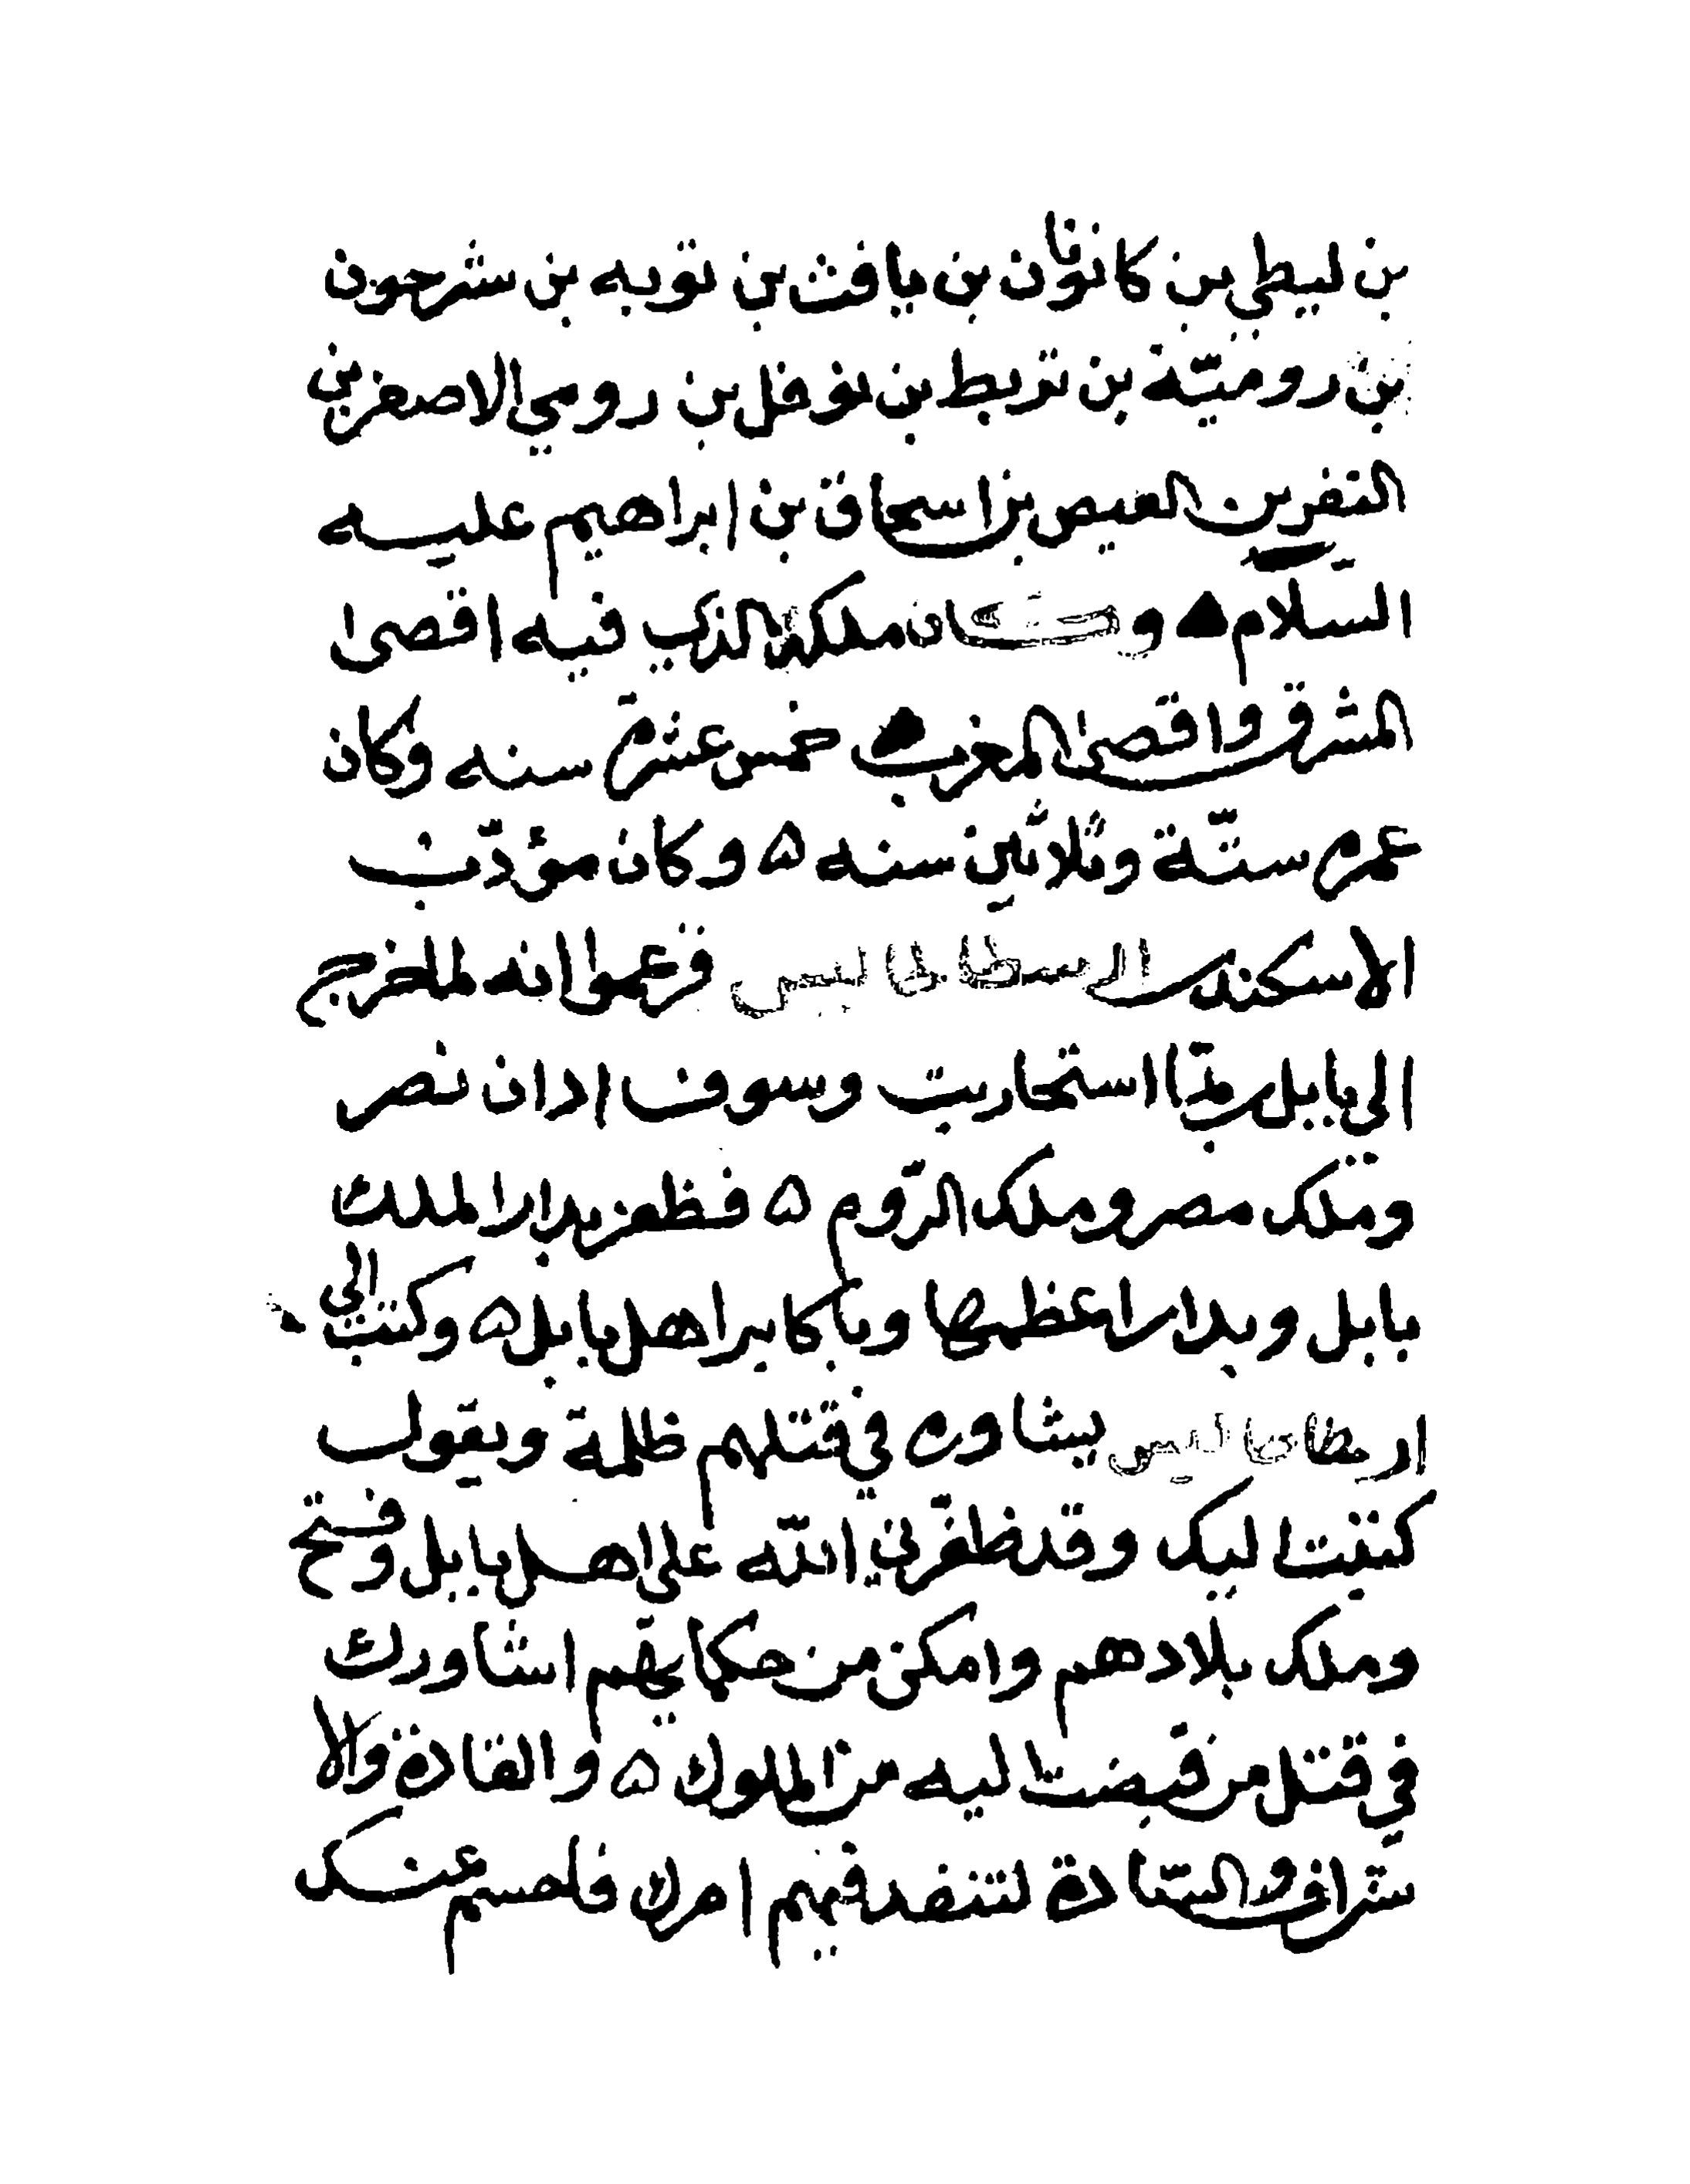 بن ليطي بن كانوثان بن يافث بن توبه بن سرجون
بن روميّة بن تربط بن نوفل بن رومي الاصفر بن
اليفز بن العيص بن اسحاق بن ابراهيم عليه
السلام وكان ملكه الذي فيه اقصى ا
المشرق واقصى المغرب خمس عشرة سنه وكان
عمره ستّة وثلاثين سنه ه وكان مؤدّب
الاسكندر ارسطاطاليس فزعموا انه لما خرج
الي بابل استحاريب وسوف ادان نصر
وملك مصر وملك الرّوم ه فظفر بدارا الملك
بابل وبدارا عظيمها وباكابر اهل بابل ه وكتب الي
ارسطاطاليس يشاوره في قتلهم ظلمة ويقول
كتبت اليك وقد ظفّرني اللّه على اهل بابل وفتح
وملك بلادهم وامكن من حكايتهم اشاورك
في قتل من قبضت اليه من الملوك ه والقادة والا
شراف والسّادة لتنفد فيهم امرك فلحسم عنك